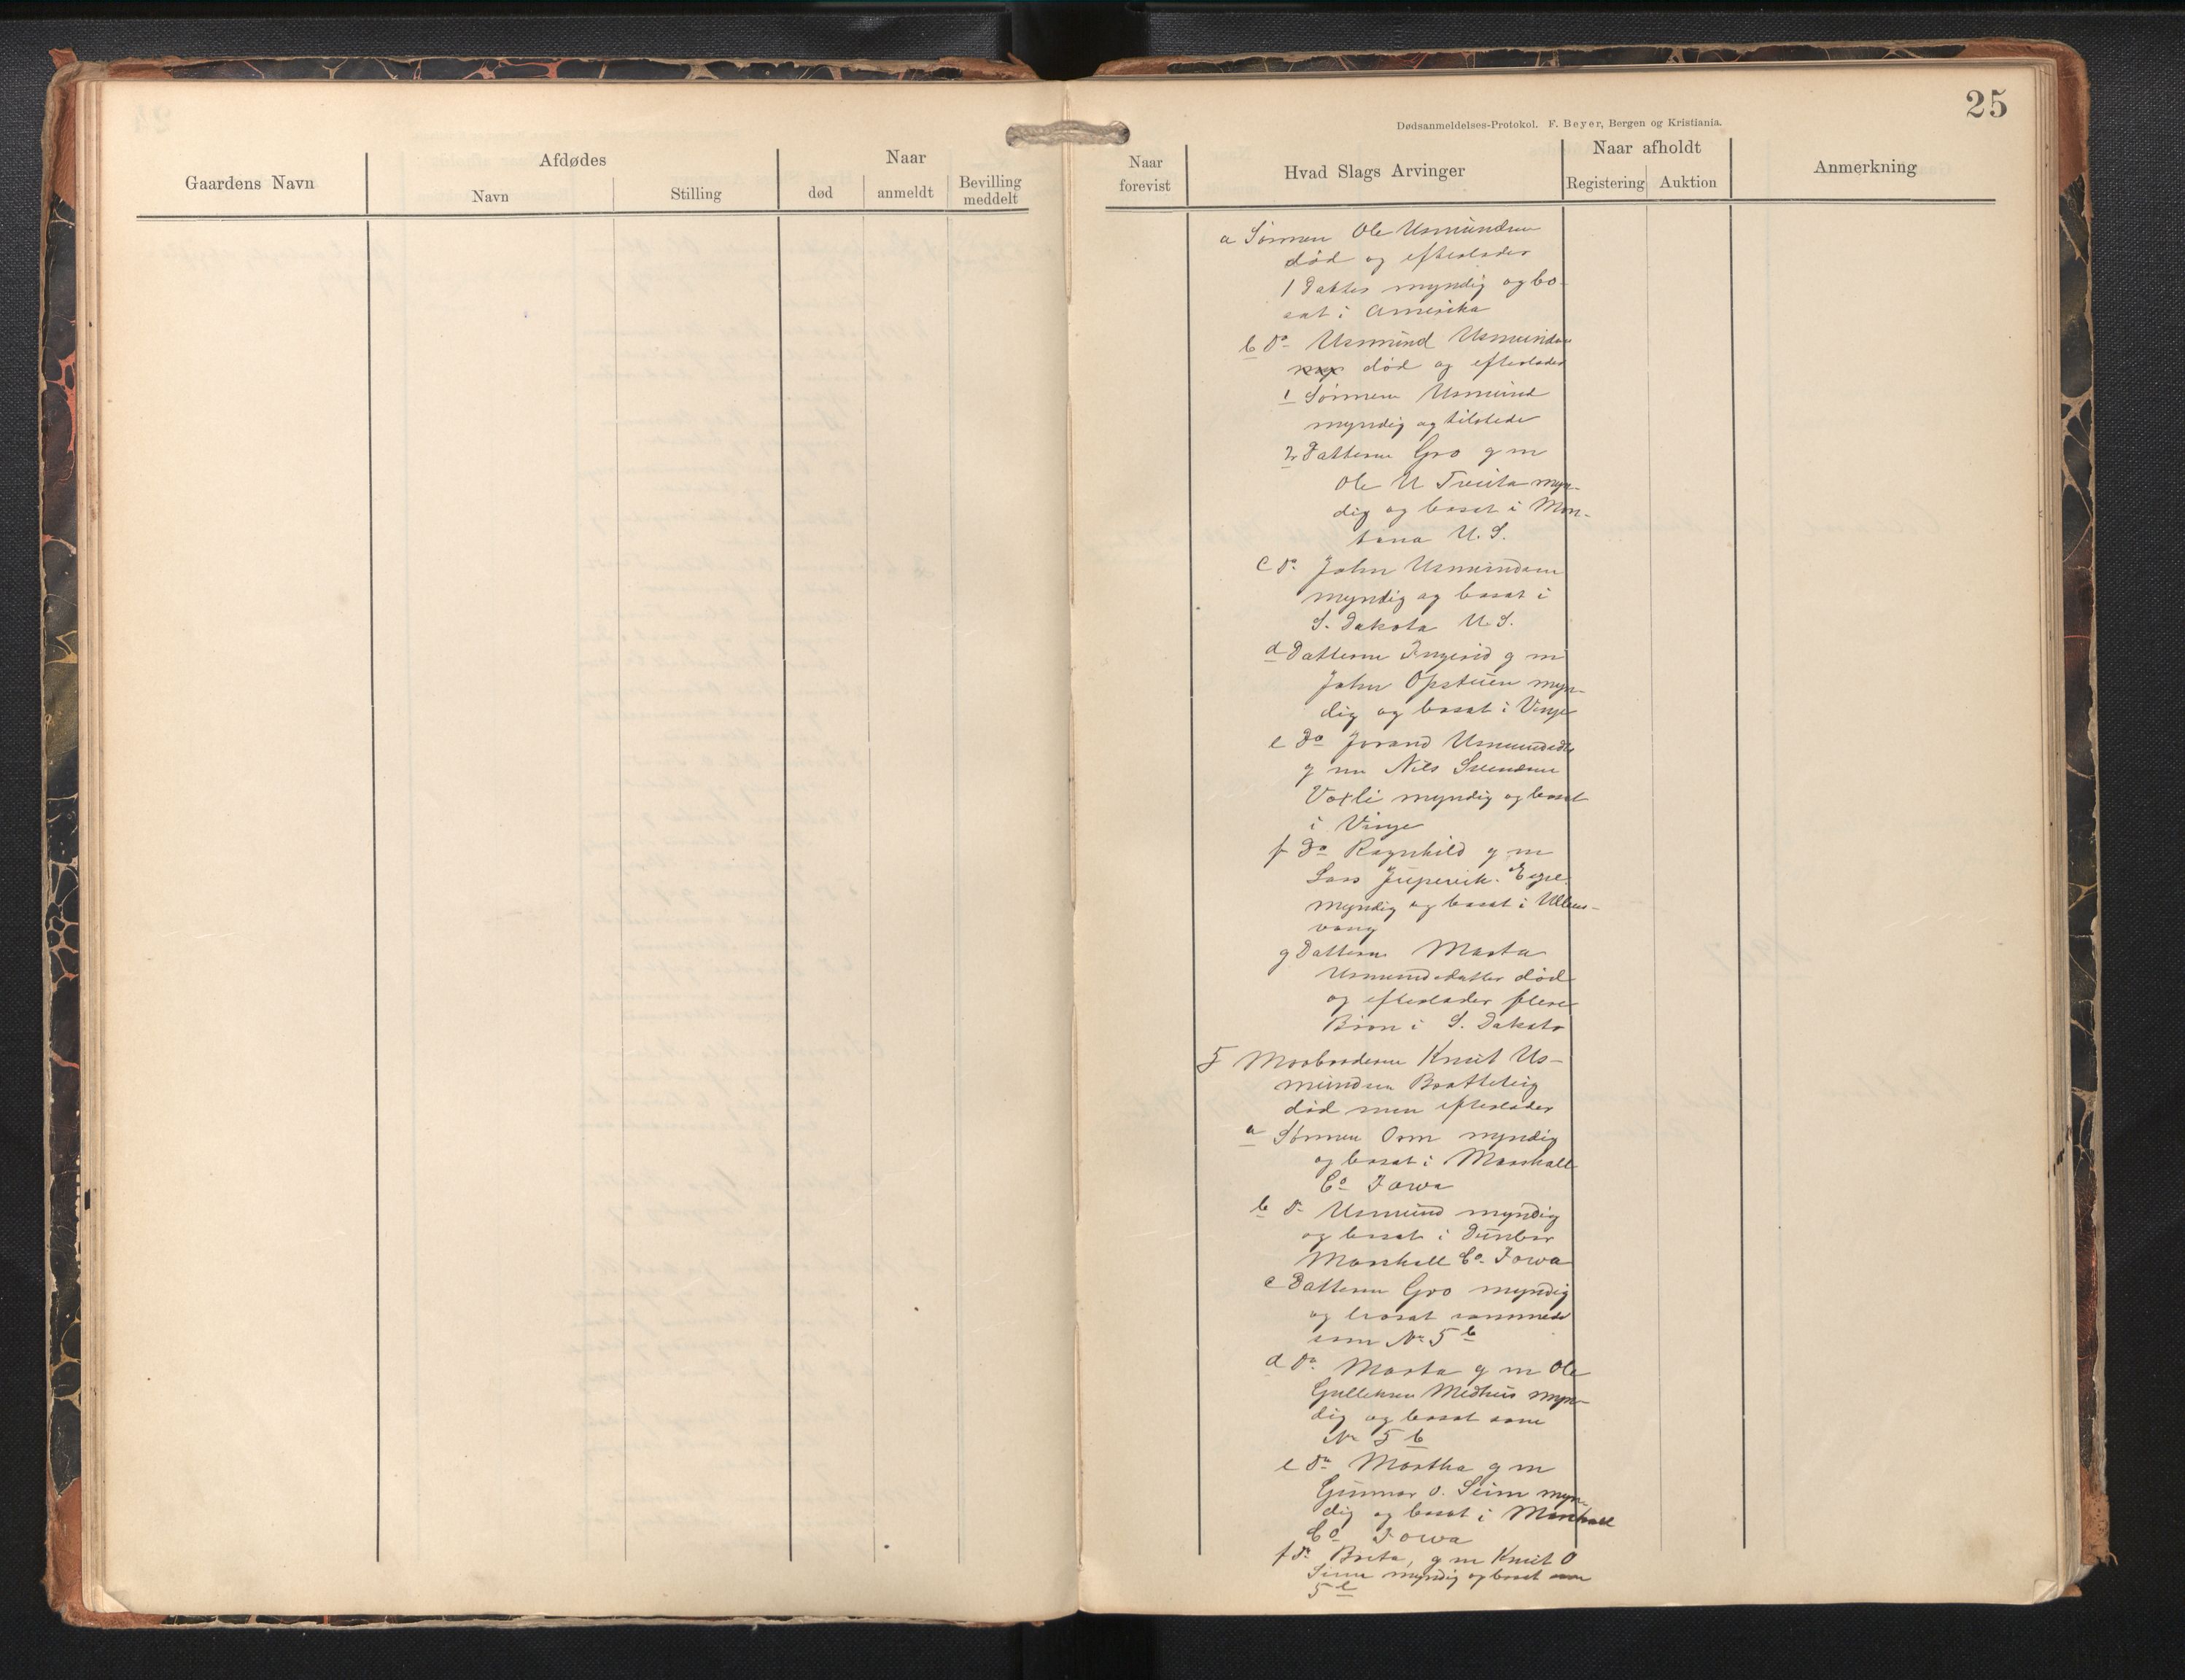 25
Dødsanmeldelses-Protokol. F. Beyer, Bergen og Kristiania.
Gaardens Navn
Afdødes
Navn
Stilling
Naar
død
anmeldt
Bevilling meddelt
Naar forevist
Hvad Slags Arvinger
Naar afholdt
Registering
Auktion
Anmerkning
a Sønnen Ole Usmundsen
død og efterlader
1 Datter myndig og bo-
sat i Amerika
b Do Usmund Usmundsen
død og efterlader
1 Sønnen Usmund
myndig og tilstede
2 Datteren Gro g m
Ole U myn-
dig og bosat i Mon-
tana U. S.
c Do John Usmundsen
myndig og bosat i
S. Dakota U. S.
d Datteren Ingerid g m
John Opstuen myn-
dig og bosat i Vinje
e Do Jorand Usmundsdtr
g m Nils Svendsen
Voxli myndig og bosat
i Vinje
f Do Ragnhild g m
Lars
myndig og bosat i Ullens-
vang
g Datteren Marta
Usmundsdatter død
og efterlader flere
Børn i S. Dakota
5 Morbroderen Knut Us-
mundsen Bratteteig
død men efterlader
a Sønnen Orm myndig
og bosat i Marshall
Co Iowa
b Do Usmund myndig
og bosat i Dunbar
Marshall Co. Iowa
c Datteren Gro myndig
og bosat sammested
som No 5 b
d Do Marta g m Ole
Gulleksen Medhus myn-
dig og bosat som
No 5 b
e Do Martha g m
Gunnar O. Seim myn-
dig og bosat i Marshall
Co Iowa
f Do Brita, g m Knut O
Seim myndig og bosat som
5 e